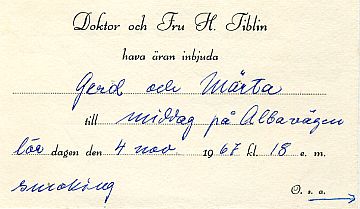 Doktor och Fru H. Tiblin
hava äran inbjuda
Gerd och Märta
till middag på Albavägen
lör dagen den 4 nov. 1967 kl. 18 e. m.
smoking O. s. a.